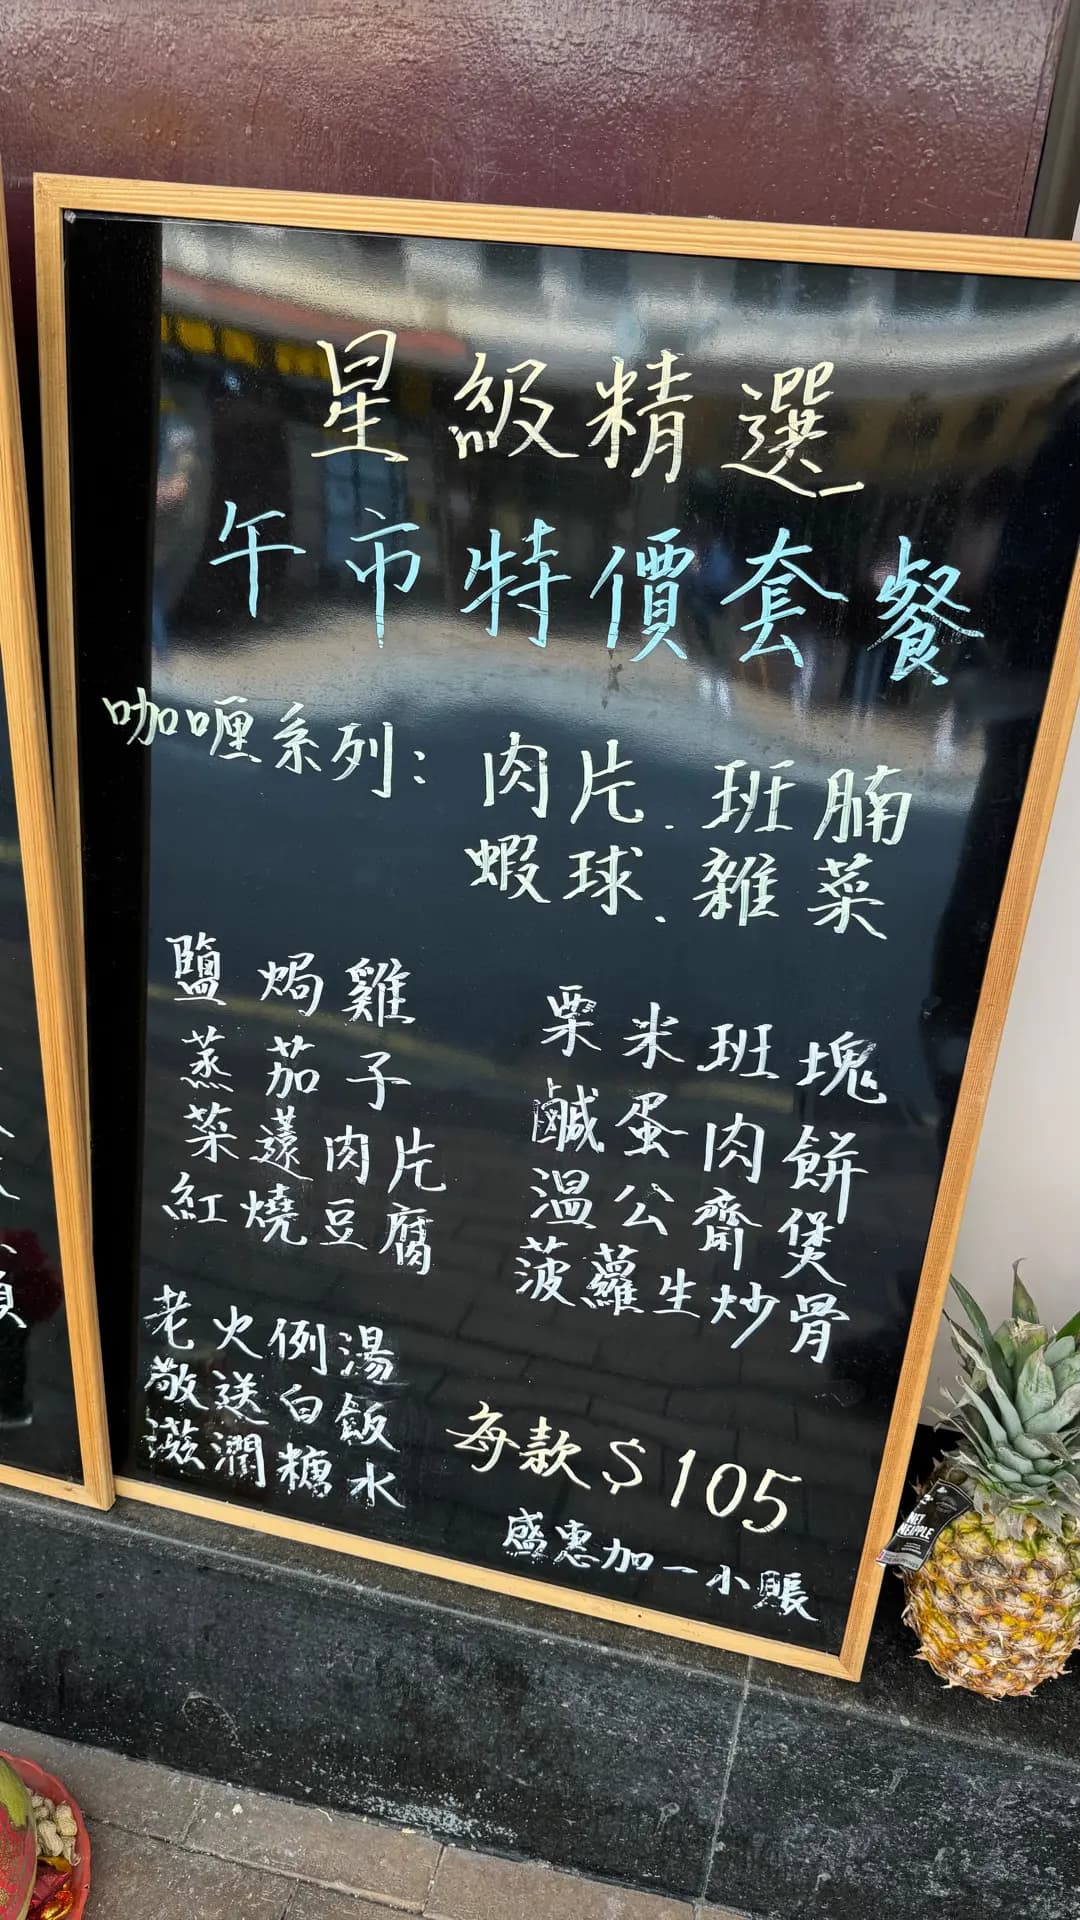 星級精選
午市特價套餐
咖喱系列：肉片．班腩
蝦球．雜菜
鹽焗雞
蒸茄子
菜薳肉片
紅燒豆腐
粟米班塊
鹹蛋肉餅
溫公齋煲
菠蘿生炒骨
老火例湯
敬送白飯
滋潤糖水
每款$105
盛惠加一小賬
NET